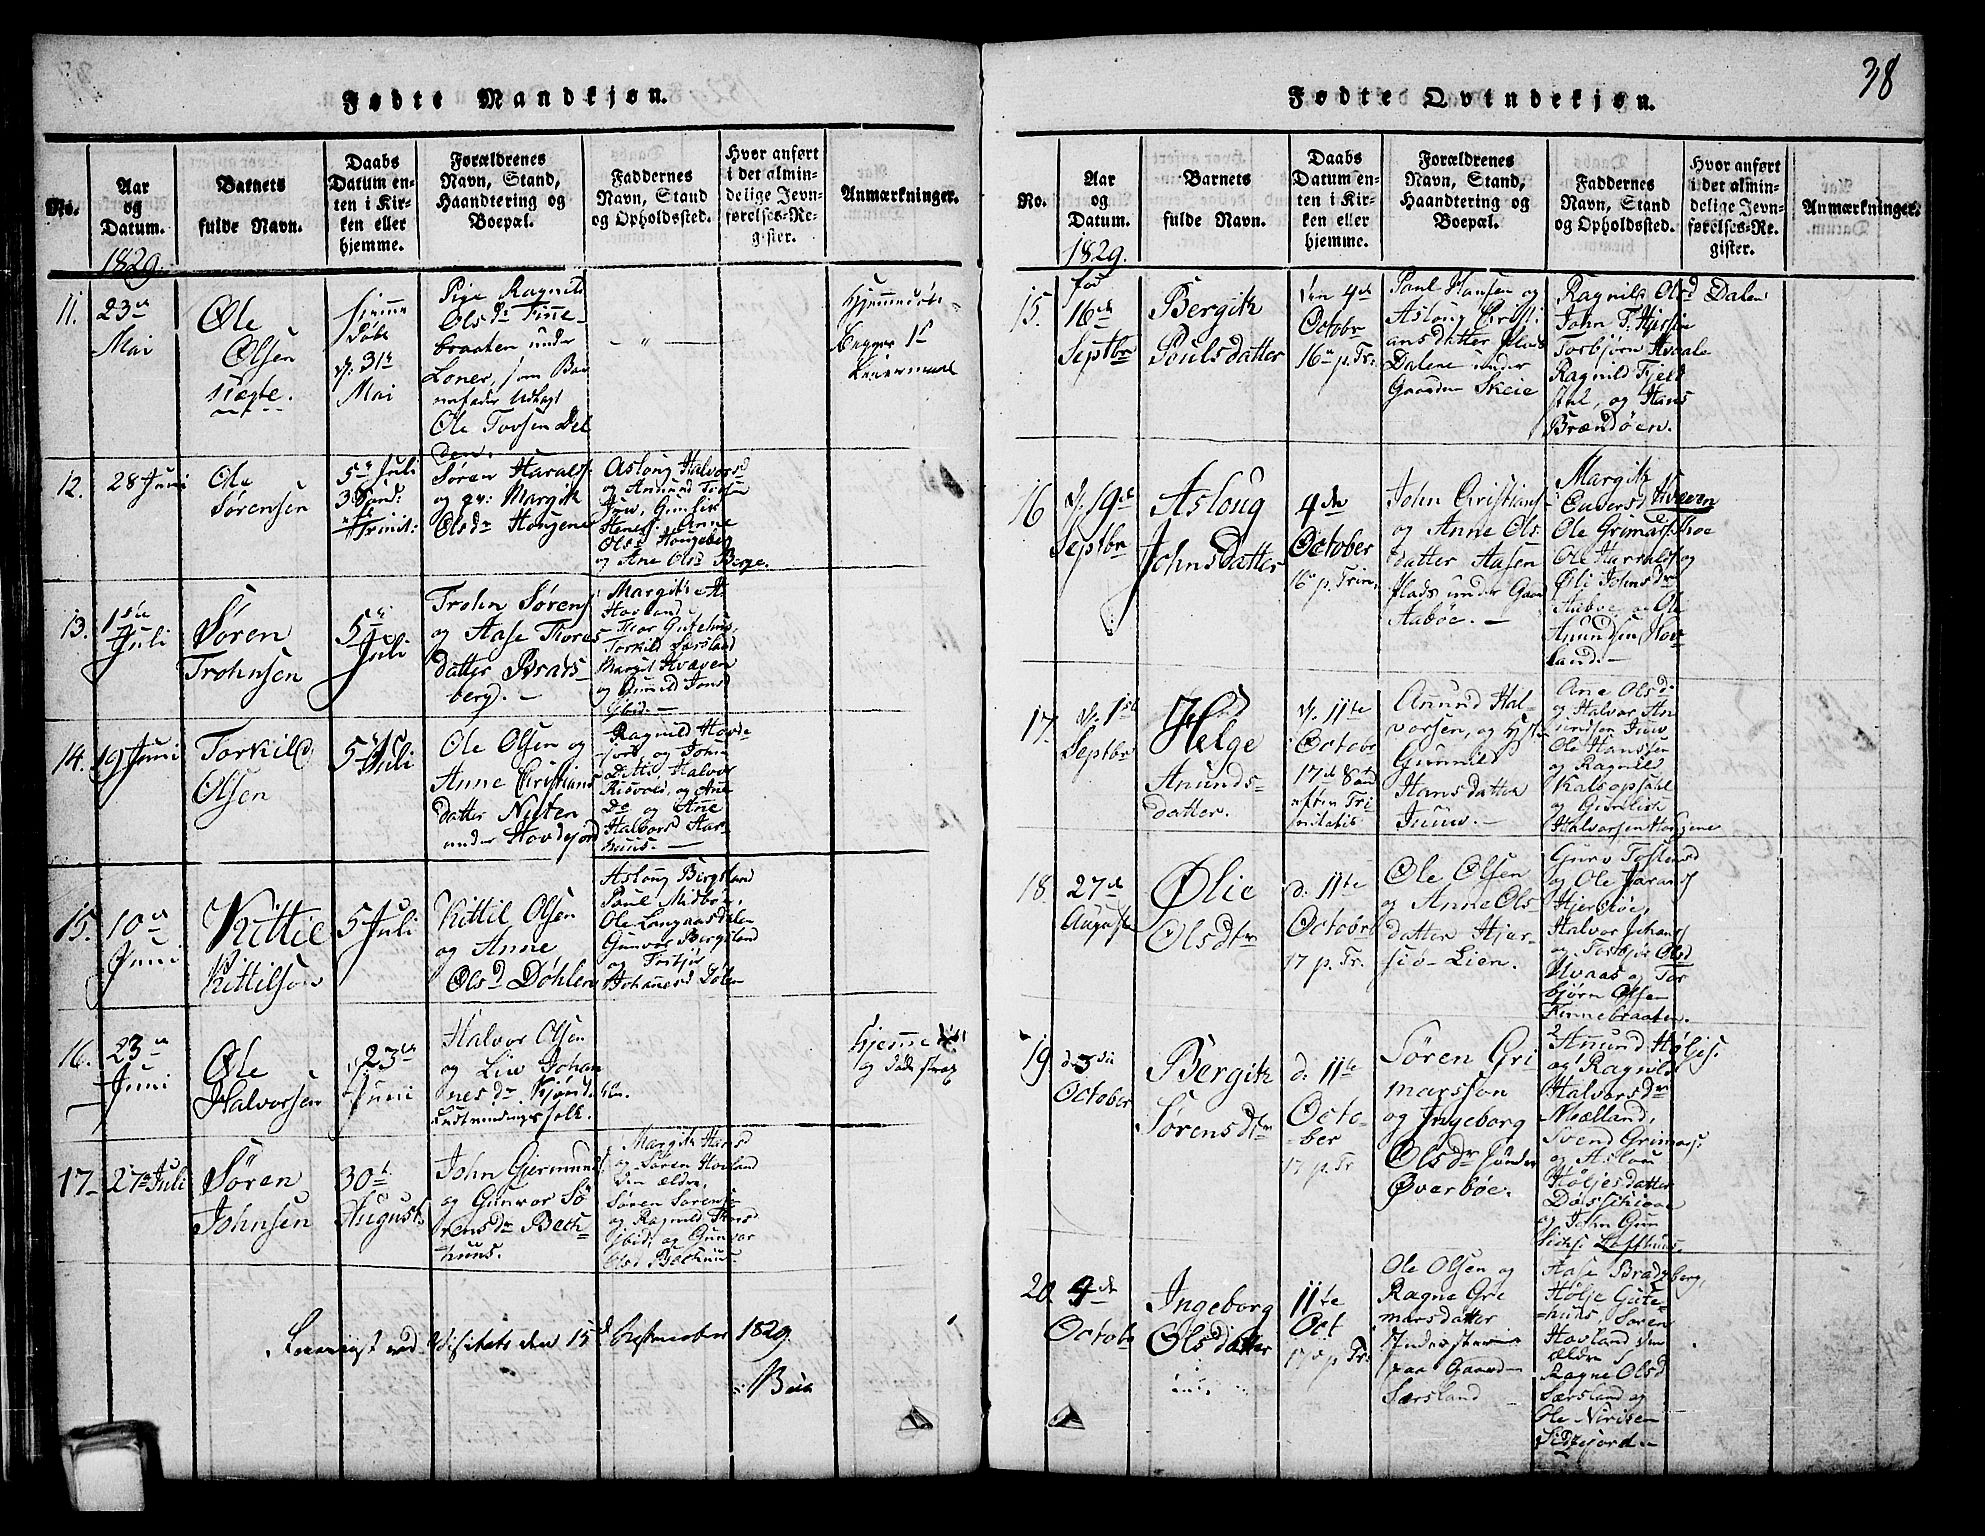 38
Fødte Mandkjøn.
No.
Aar
og
Datum.
1829.
Barnets
fulde Navn.
Daabs
Datum en-
ten i Kir-
ken eller
hjemme.
Forældrenes
Navn, Stand,
Haandtering og
Boepæl.
Faddernes
Navn, Stand
og Opholdssted.
Hvor anført
i det almin-
delige Jevn-
førelses-Re-
gister.
Anmærkninger.
11.
23de
Mai
Ole
Olsen
uægte.
hjemme
døbt
d. 31te
Mai
Pige Ragnild
Olsdr Finne-
braaten under
Loner, som Bar
nefader udlagt
Ole Torsen Dal
den.
- " -
Hjemmedøbt
Begges 1ste
Leiermaal
12.
28 Juni
Ole
Sørensen
5te Juli
3 Sønd:
eft
Trinit:
Søren Haralds:
og qv: Margit
Olsdr Hougene
Aslong Halvorsd
og Amund
Juw, Gunlik
Anne
Olsd Hougeberg
og Ane Olsd Berge.
13.
1ste
Juli
Søren
Trohnsen
5te
Juli
Trohn Sørens
og Aase Thores
datter Brats-
berg. -
Margit A
Hovland
Thor Gutehus,
Torkild Særsland
Margit Hvaven
og Gunild Jonsd
Ibid. -
14.
19 Juni
Torkild
Olsen
5 Juli
Ole Olsen og
Anne Christians
datter Nisten
under Hovdejord
Ragnild Hovde-
jord og John
Ditto, Halvor
Risvold, og Ane
Do og Ane
Halvorsd Aar-
huus. -
15.
10de
Juni
Kittil
Kittilsen
5 Juli
Kittil Olsen
og Anne
Olsd Døhlen
Aslong Bergsland
Poul Midbøe,
Ole Langaasdalen
Gunvor Bergsland
og
Johannesd Dølen
16.
23de
Juni
Ole
Halvorsen
d. 23de
Juni
Halvor Olsen
og Liv Johan
nesdr
folk.
Hjemme døbt
og døde strax
17.
27de Juli
Søren
Johnsen
30te
August
John Gjermunds
og Gunvor Sø
rensdr Bakk-
huus.
Margit Hansd
og Søren Hovland
den ældre,
Søren Sørens
og Ragnild Thorsd
Ibid, og Gunvor
Olsd Backhuus
ved Visitats den 15de September 1829.
Fødte Qvindekjøn.
No.
Aar
og
Datum.
1829.
Barnets
fulde Navn.
Daabs
Datum en-
ten i Kir-
ken eller
hjemme.
Forældrenes
Navn, Stand,
Haandtering og
Boepæl.
Faddernes
Navn, Stand
og Opholdssted.
Hvor anført
i det almin-
delige Jevn-
førelses-Re-
gister.
Anmærkninger.
15.
fød
16de
Septbr
Bergith
Poulsdatter
den 4de
Octobr
16de p. Tr:
Paul Hansen og
Aslong Christi
ansdatter Plads
Dalene under
Gaarden Skeie
Ragnild Olsd Dalen:
John T. Hjersiø
Torbjørn Hvaale
Ragnild Fjeld
stul, og Hans
Brændøen.
16
d. 19de
Septbr
Aslong
Johnsdatter
4de
October
16de p. Trin:
John Christians
og Anne Ols
datter Aasen
Plads under Gaar
Aabøe. -
Margit
Hvaven
Ole Grimars: Moe
Ole Harralds og
Øli Johnsdr
Aabøe, og Ole
Amundsen Hov-
land. -
17.
d. 1ste
Septbr
Helge
Amunds-
datter.
d. 11te
Octobr
17de Sønd
efter Tri
nitatis
Amund Hal-
vorsen, og Hustr
Gunnild
Hansdatter
Juuw. -
Ane Olsd
og Halvor Am
undsen Juw
Ole Hanssen
og Ragnild
Kalsopsahl
og Gunlich
Halvorsen Hougene
18.
27de
August
Ølie
Olsdtr
d. 11te
Octobr
17 p. Tr.
Ole Olsen
og Anne Ols-
datter Hjer-
siø-Lien.
Gurv Tostensd
og Ole
Hjersiøe,
Halvor Johans
og Torbjør Olsd
Hvaas og Tor
bjørn Olsen
Finnebraaten.
19.
d. 3die
October
Bergith
Sørensdtr
d. 11te
Octo-
ber
17 p. Tr
Søren Gri
marsson
og Ingeborg
Olsdr Søndre
Øverbøe.
Amund Høljes:
og Ragnild
Halvorsdr
Meælland,
Svend Grimars:
og Aslou
Høljesdatter
og John Gun
licks: Lofthuus.
20
4de
Octobr
Ingeborg
Olsdatter
11te
Oct
17de p. Tr:
Ole Olsen og
Ragne Gri
marsdatter
Inderster
paa Gaard
Særsland
Aase Bradsberg,
Hølje Gute-
huus, Søren
Hovland den
ældre
Ragne Olsd
Særsland og
Ole Nirisen